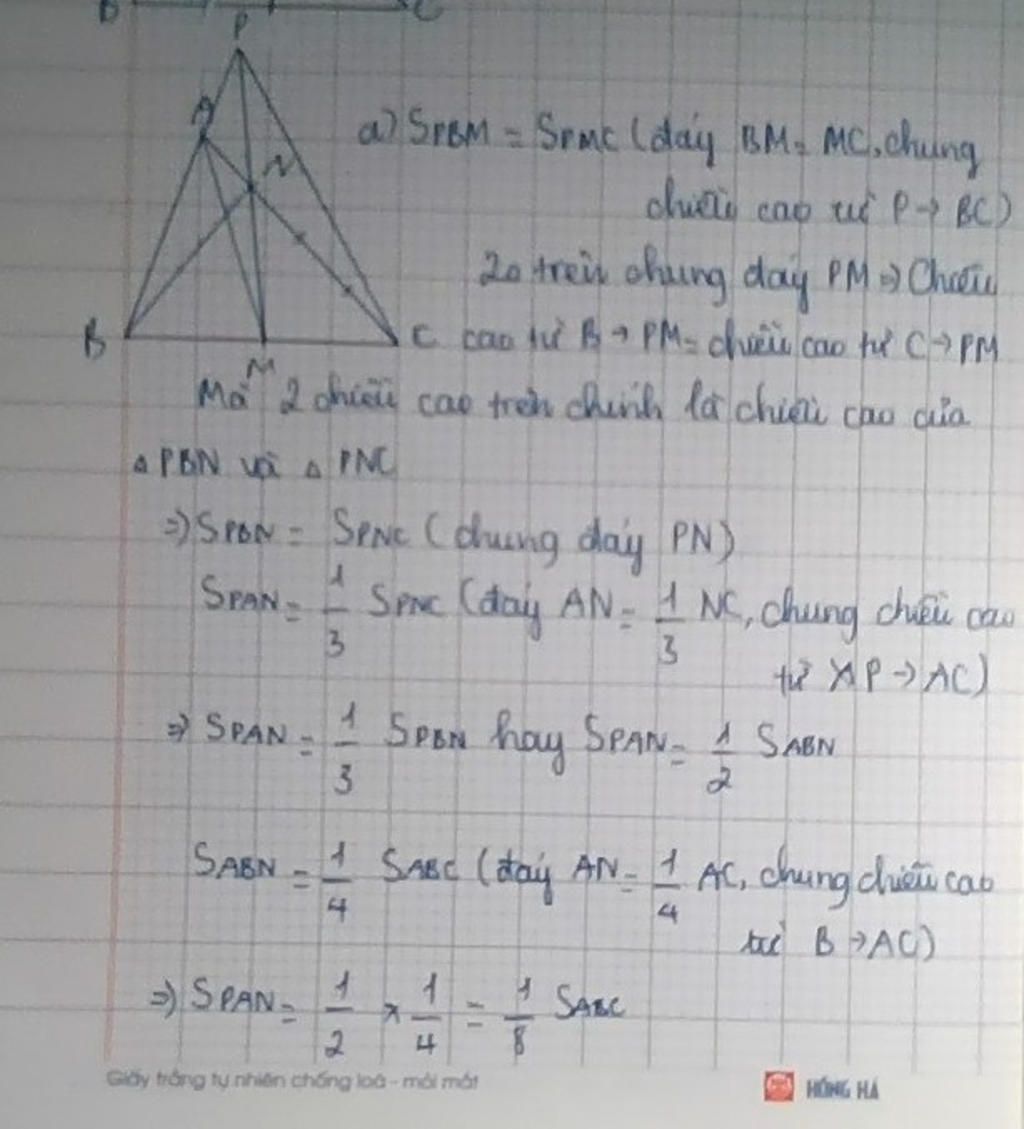 B C
P
A
N
B
C
M
a) SPBM = SPMC (đáy BM = MC, chung
chiều cao từ P → BC)
2△ trên chung đáy PM => Chiều
cao từ B → PM = chiều cao từ C → PM
Mà 2 chiều cao trên chính là chiều cao của
△ PBN và △ PNC
=> SPBN = SPNC (chung đáy PN)
SPAN = 1/3 SPNC (đáy AN = 1/3 NC, chung chiều cao
từ P → AC)
=> SPAN = 1/3 SPBN hay SPAN = 1/2 SABN
SABN = 1/4 SABC (đáy AN = 1/4 AC, chung chiều cao
từ B → AC)
=> SPAN = 1/2 × 1/4 = 1/8 SABC
Giấy trắng tự nhiên chống loá - mỏi mắt
HỒNG HÀ